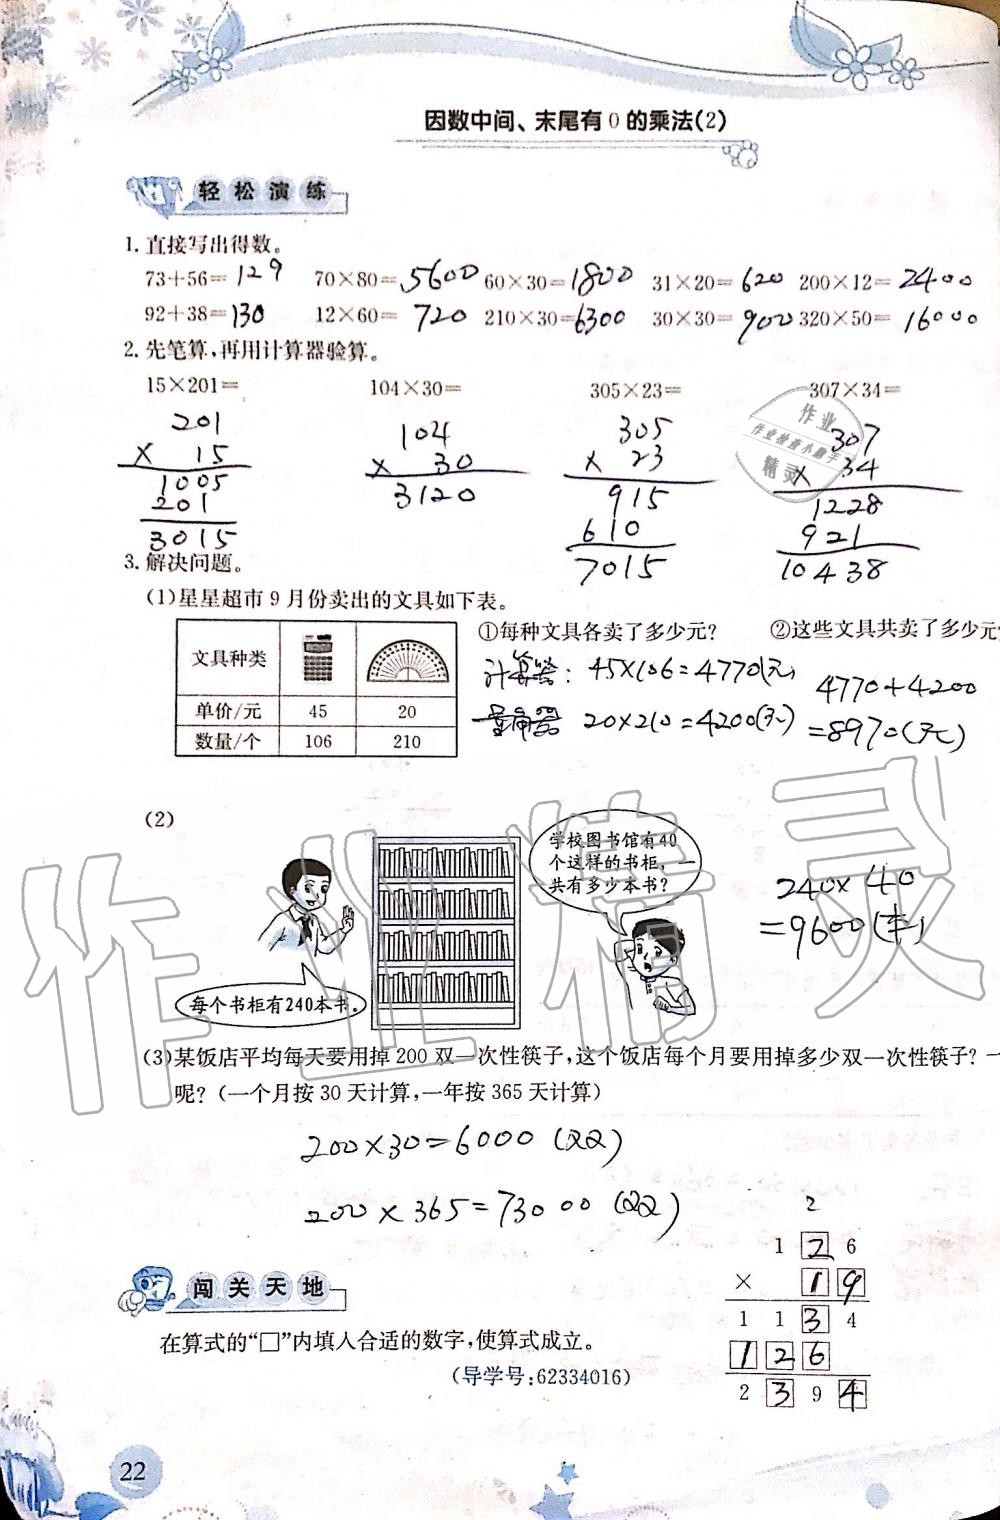 因数中间、末尾有0的乘法(2)
轻松演练
1.直接写出得数。
73+56= 129 70×80= 5600 60×30= 1800 31×20= 620 200×12= 2400
92+38= 130 12×60= 720 210×30= 6300 30×30= 900 320×50= 16000
2.先笔算,再用计算器验算。
15×201= 104×30= 305×23= 307×34=
201 104 305 307
× 15 × 30 × 23 × 34
1005 3120 915 1228
201 610 921
3015 7015 10438
作业
作业检查小助手
精灵
3.解决问题。
(1)星星超市9月份卖出的文具如下表。
文具种类
单价/元 45 20
数量/个 106 210
①每种文具各卖了多少元? ②这些文具共卖了多少元
计算器: 45×106=4770(元)
量角器 20×210=4200(元)
4770+4200
=8970(元)
(2)
学校图书馆有40
个这样的书柜,一
共有多少本书?
每个书柜有240本书。
240×40
=9600(本)
作业精灵
(3)某饭店平均每天要用掉200双一次性筷子,这个饭店每个月要用掉多少双一次性筷子?一
呢?(一个月按30天计算,一年按365天计算)
200×30=6000(双)
200×365=73000(双)
闯关天地
在算式的“□”内填入合适的数字,使算式成立。
(导学号:62334016)
2
1 2 6
× 1 9
1 1 3 4
1 2 6
2 3 9 4
22